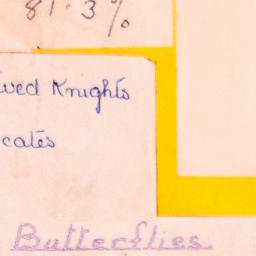 81.3%
ved Knights
cates
Butterflies.